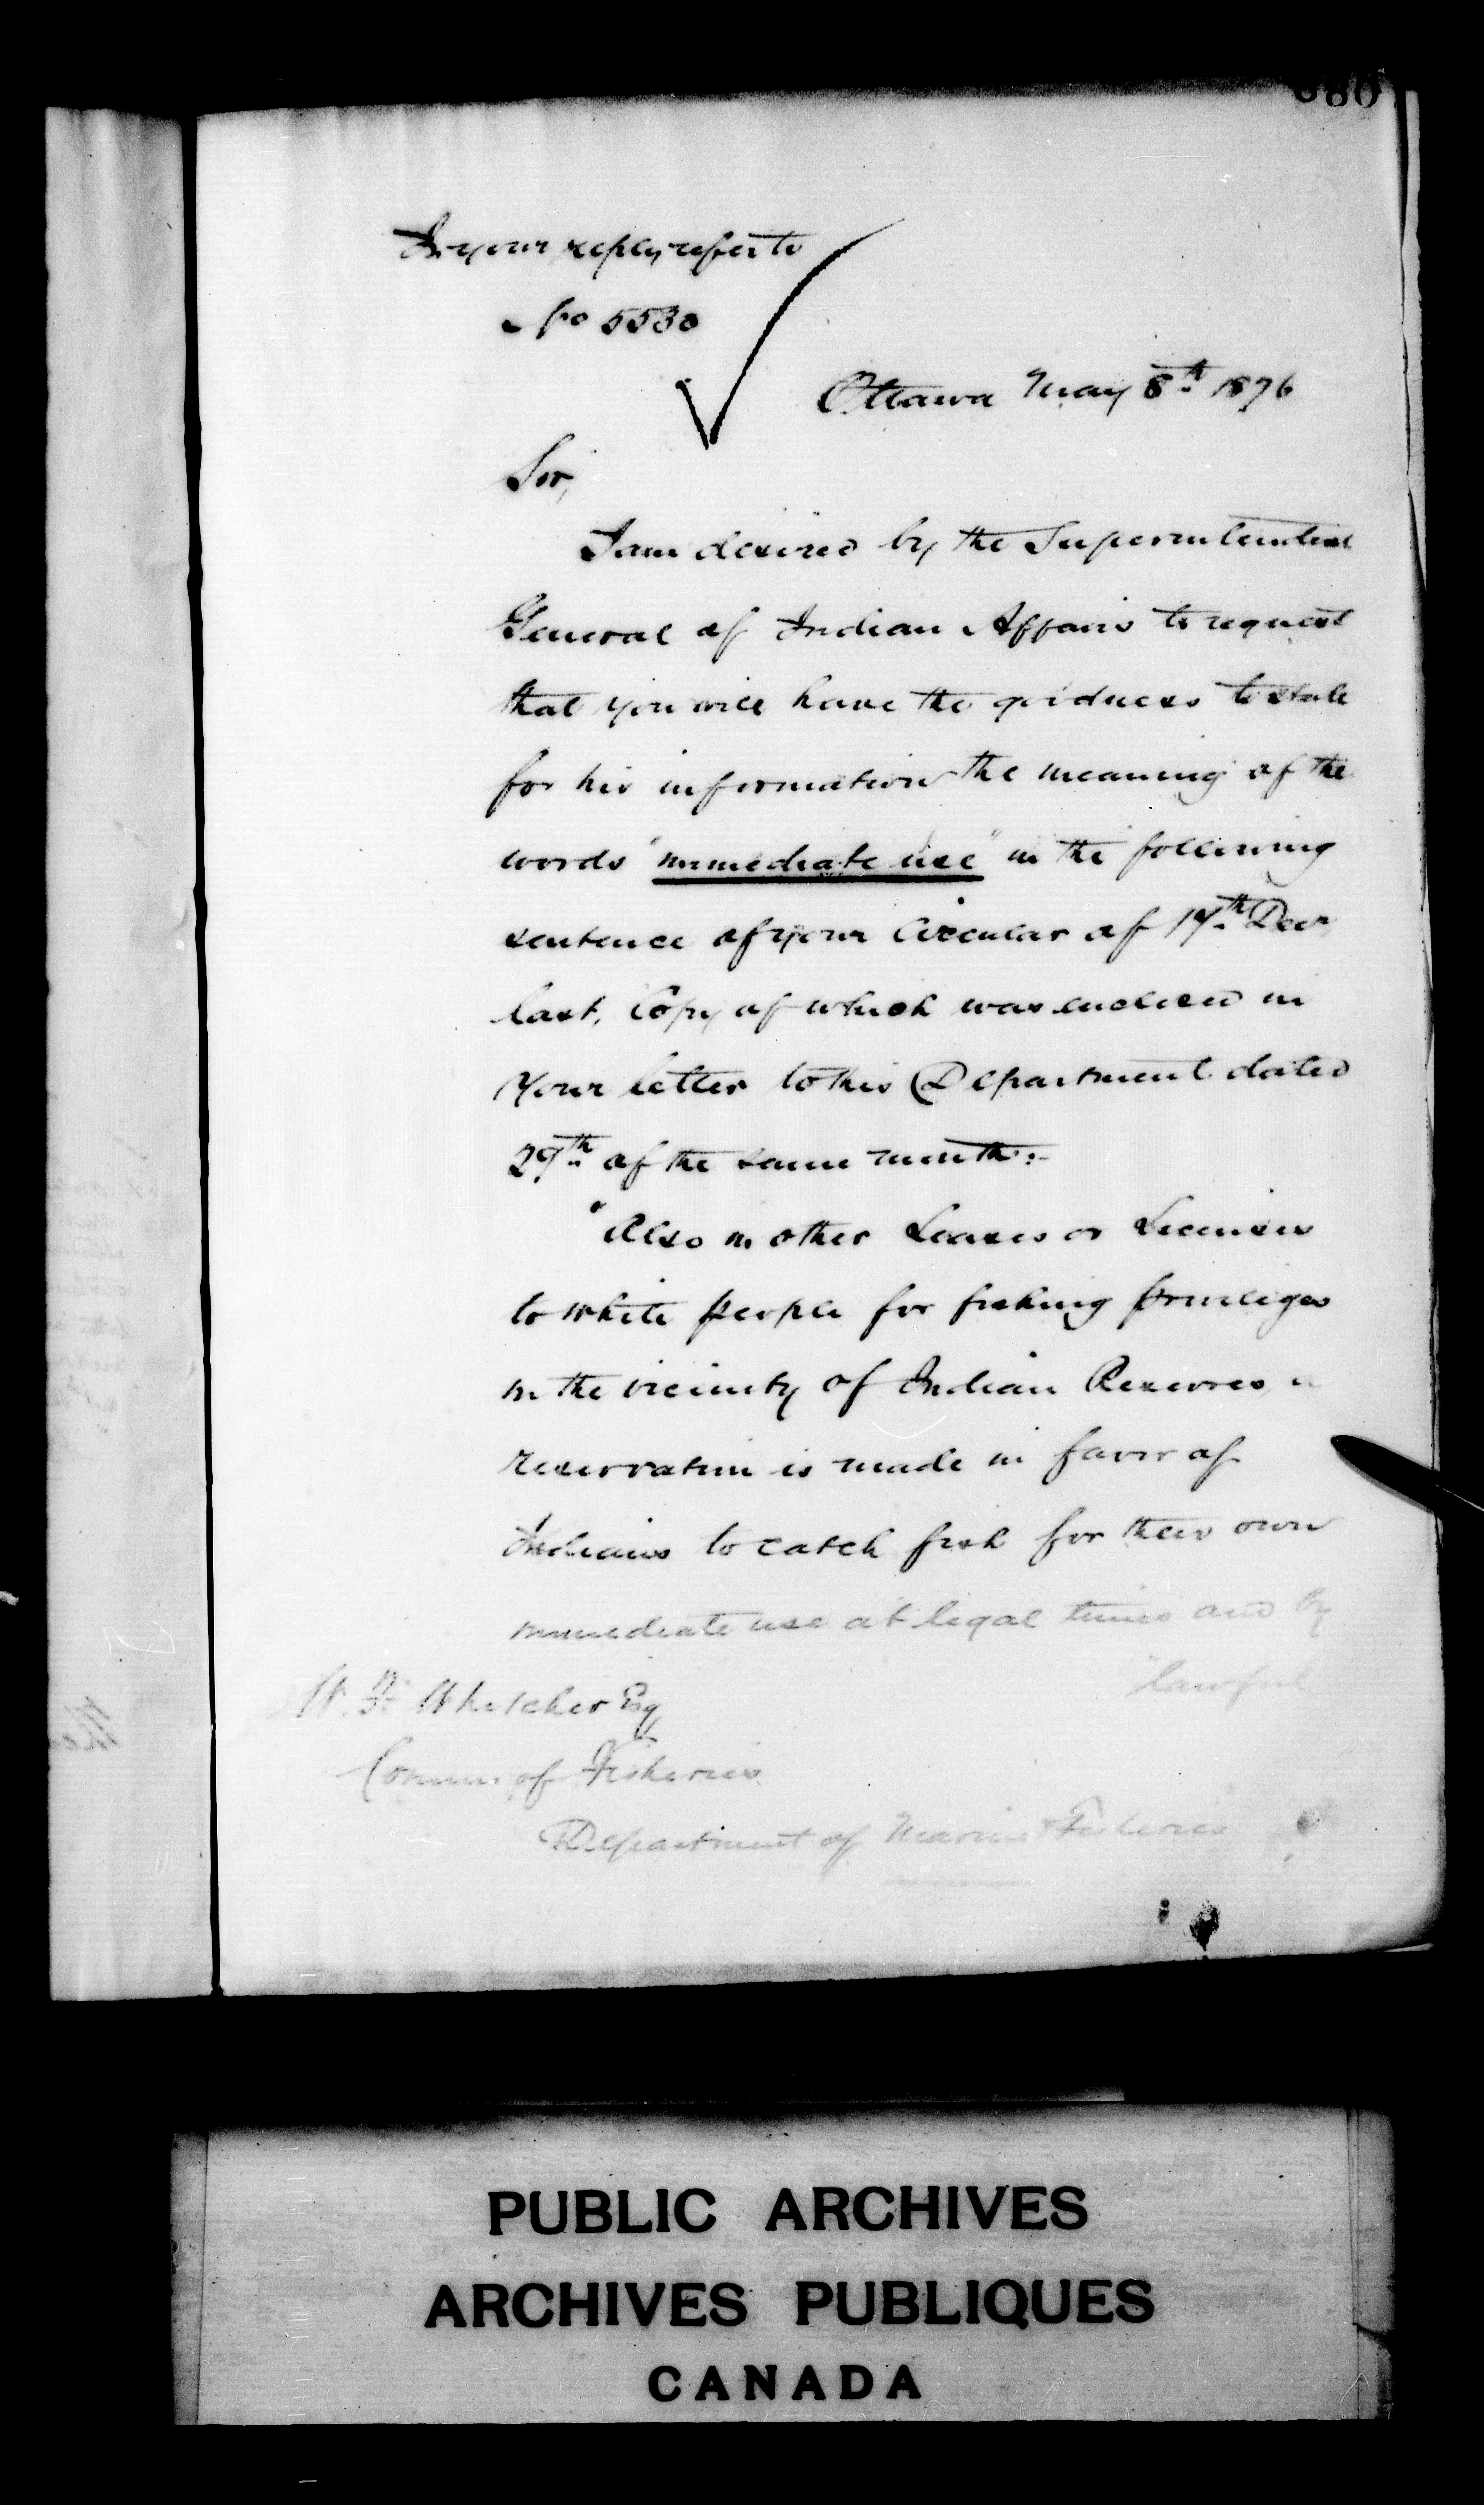 In your reply refer to
No 5530
Ottawa May 8th 1876
Sir,
I am desired by the Superintendent
General of Indian Affairs to request
that you will have the goodness to state
for his information the meaning of the
words "immediate use" in the following
sentence of your Circular of 17th Decr
last, Copy of which was enclosed in
your letter to this Department dated
29th of the same month:-
"Also in other Leases or Licenses
to white people for fishing privileges
in the vicinity of Indian Reserves, a
reservation is made in favor of
Indians to catch fish for their own
immediate use at legal times and by
lawful
W. F. Whitcher Esq
Commr of Fisheries
Department of Marine & Fisheries
PUBLIC ARCHIVES
ARCHIVES PUBLIQUES
CANADA